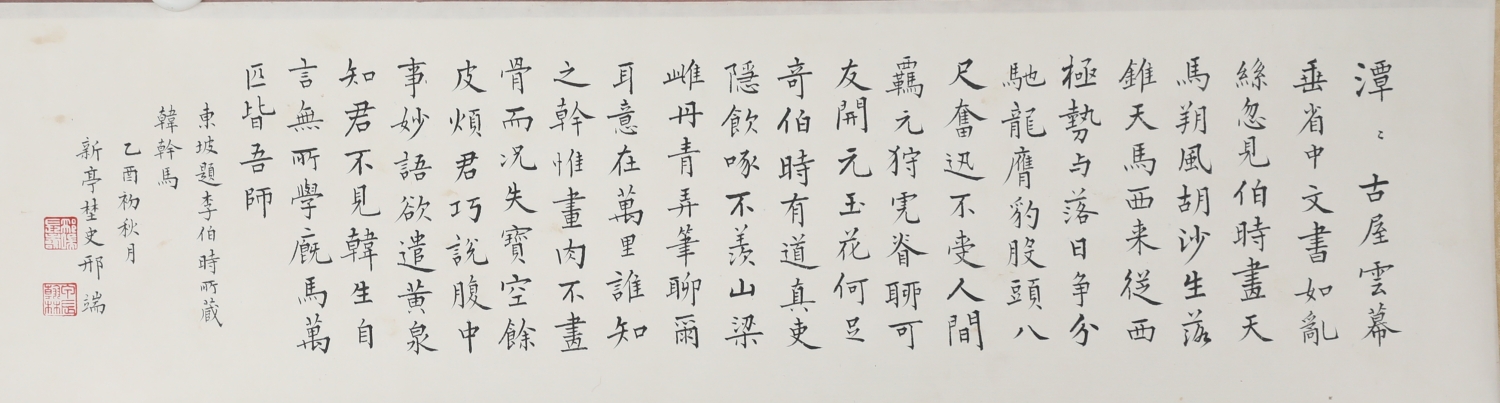 潭〻古屋雲幕
垂省中文書如亂
絲忽見伯時畫天
馬朔風胡沙生落
錐天馬西来從西
極勢与落日争分
馳龍膺豹股頭八
尺奮迅不受人間
羈元狩虎脊聊可
友開元玉花何足
奇伯時有道真吏
隱飲啄不羨山梁
雌丹青弄筆聊爾
耳意在萬里誰知
之幹惟畫肉不畫
骨而况失實空餘
皮煩君巧說腹中
事妙語欲遣黃泉
知君不見韓生自
言無所學廐馬萬
匹皆吾師
東坡題李伯時所藏
韓幹馬
乙酉初秋月
新亭埜史邢端